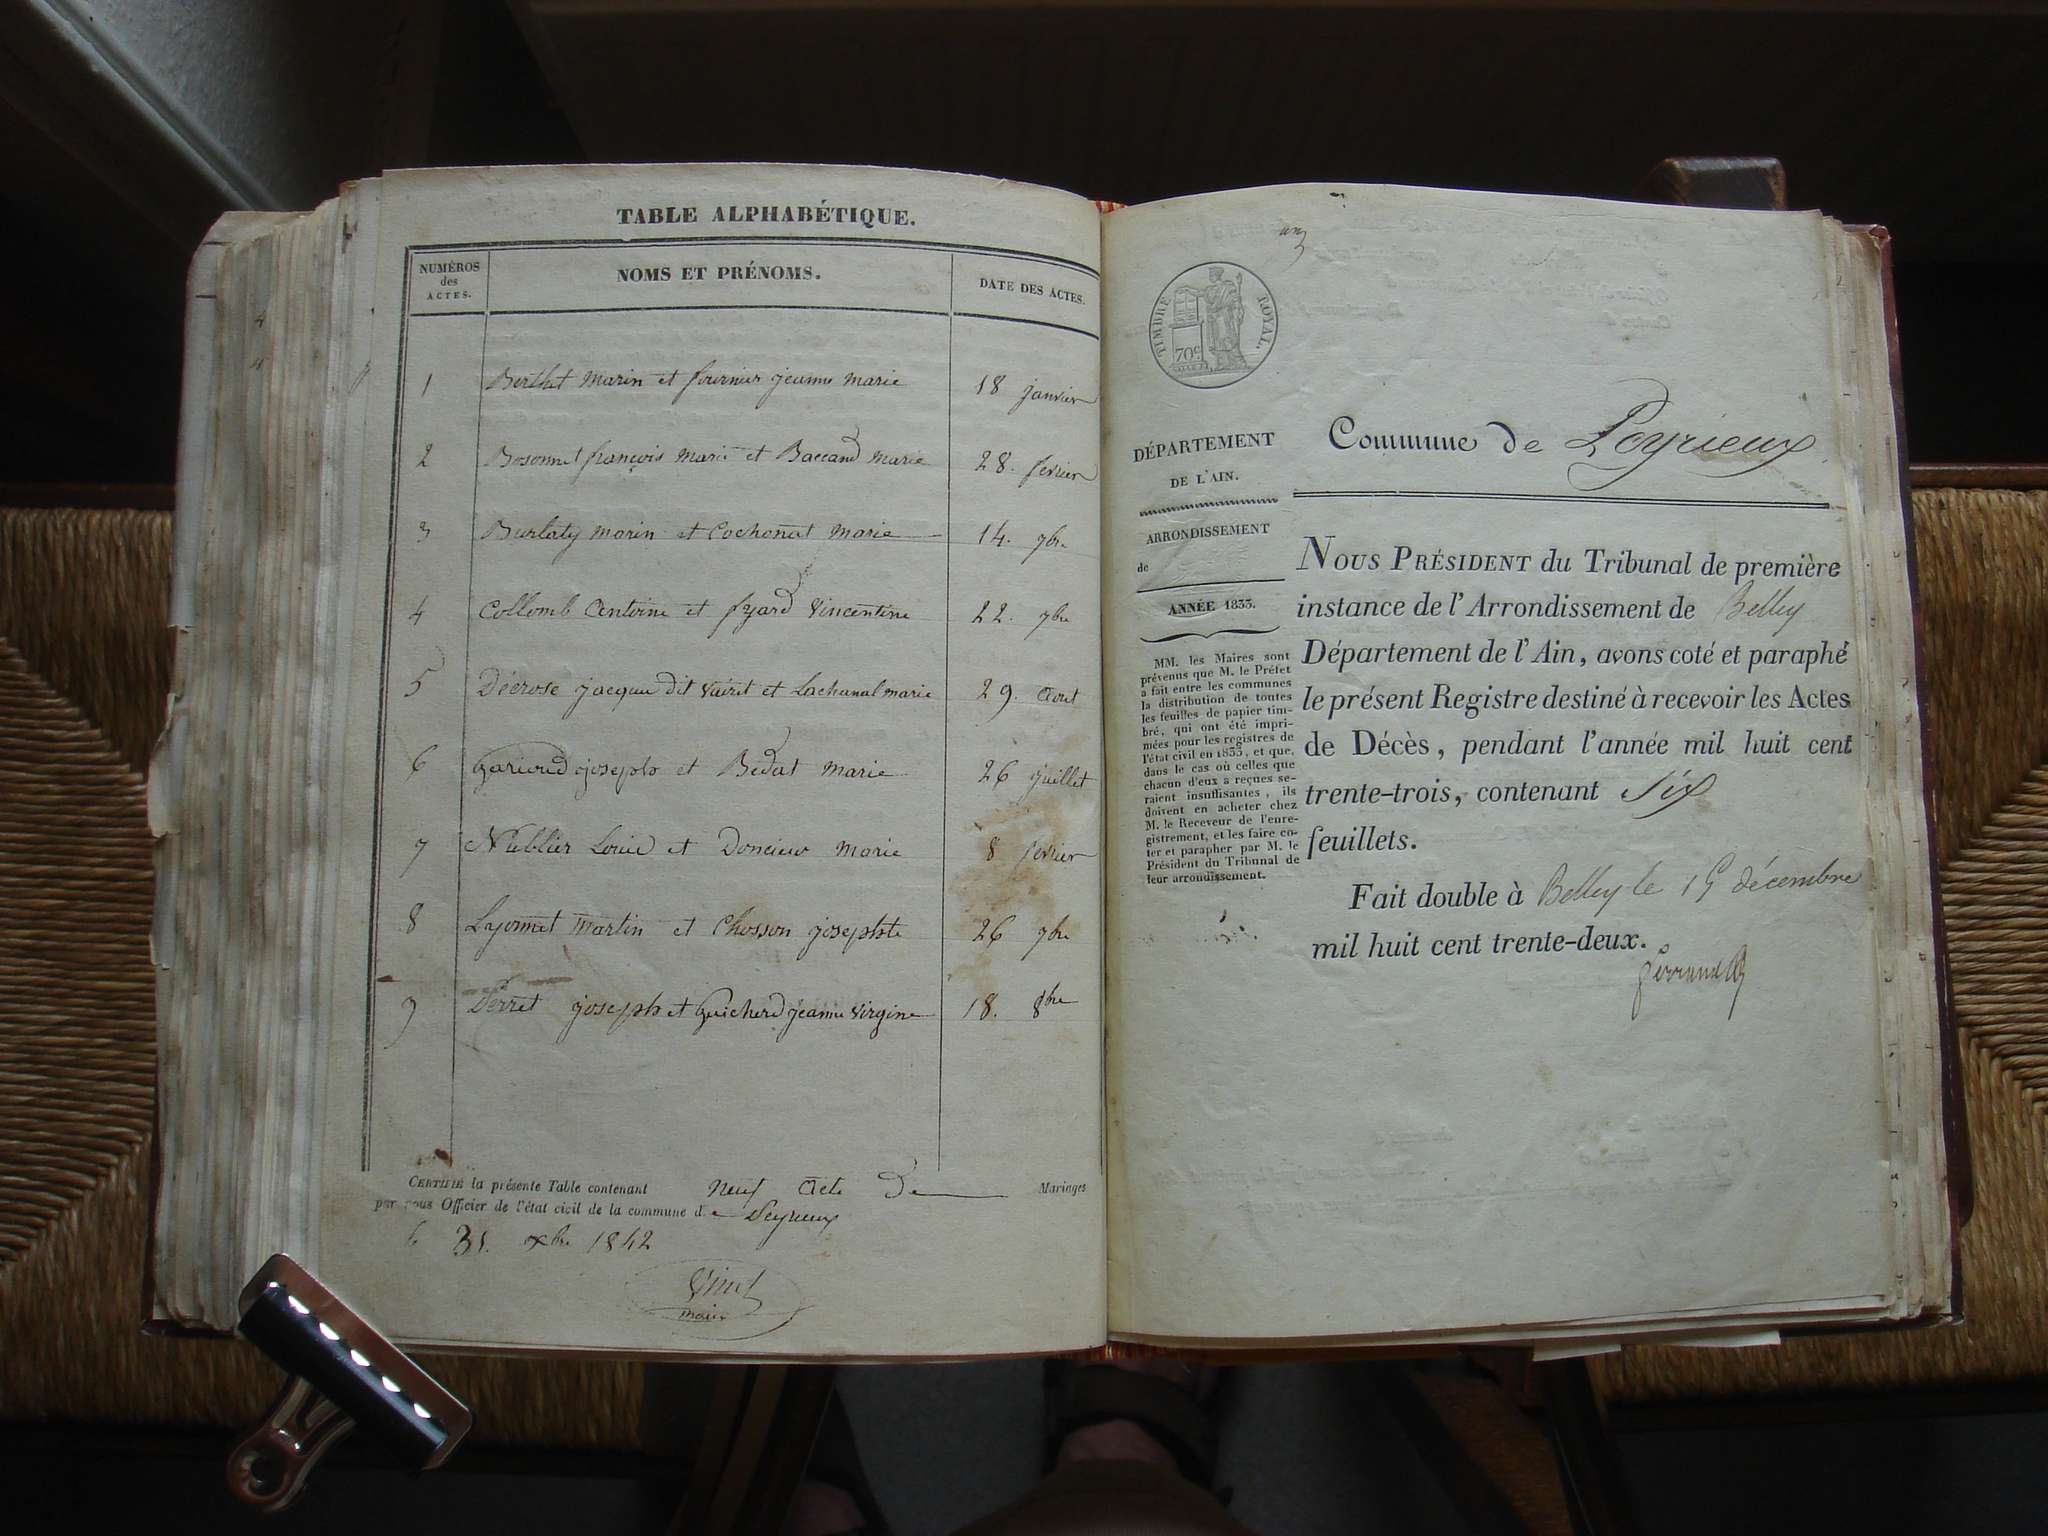 TABLE ALPHABÉTIQUE.
NUMÉROS
des
ACTES.
NOMS ET PRÉNOMS.
DATE DES ACTES.
1 Berthet Marin et fournier jeanne marie 18 janvier
2 Bosonnet françois marie et Baccand Marie 28. fevrier
3 Burlaty marin et Cochonat Marie 14. 9bre
4 Collomb Antoine et fyard Vincentine 22. 9bre
5 Décrose jacque dit et Lachanal marie 29. Aout
6 Garioud joseph et Bedat Marie 26 juillet
7 Nublier Louis et Doncieux Marie 8 fevrier
8 Lyonnet Martin et Chosson josephte 26 9bre
9 Perret joseph et Guicherd jeanne Virgine 18. 8bre
CERTIFIÉ la présente Table contenant neuf Acte De Mariages
par nous Officier de l'état civil de la commune de Peyrieux
le 31. xbre 1842
maire
TIMBRE ROYAL.
70c
Commune de Peyrieux
DÉPARTEMENT
DE L'AIN.
ARRONDISSEMENT
de
ANNÉE 1833.
MM. les Maires sont
prévenus que M. le Préfet
a fait entre les communes
la distribution de toutes
les feuilles de papier tim-
bré, qui ont été impri-
mées pour les registres de
l'état civil en 1833, et que,
dans le cas où celles que
chacun d'eux a reçues se-
raient insuffisantes, ils
doivent en acheter chez
M. le Receveur de l'enre-
gistrement, et les faire co-
ter et parapher par M. le
Président du Tribunal de
leur arrondissement.
NOUS PRÉSIDENT du Tribunal de première
instance de l'Arrondissement de Belley
Département de l'Ain, avons coté et paraphé
le présent Registre destiné à recevoir les Actes
de Décès, pendant l'année mil huit cent
trente-trois, contenant Six
feuillets.
Fait double à Belley le 15 décembre
mil huit cent trente-deux.